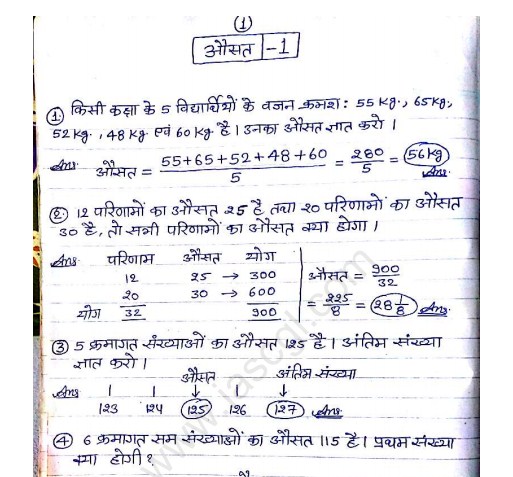 (1)
औसत - 1
① किसी कक्षा के 5 विद्यार्थियों के वजन क्रमश: 55 Kg., 65 Kg,
52 Kg., 48 Kg एवं 60 Kg है। उनका औसत ज्ञात करो।
Ans औसत = 55+65+52+48+60 / 5 = 280 / 5 = 56 Kg Ans.
② 12 परिणामों का औसत 25 है तथा 20 परिणामों का औसत
30 है, तो सभी परिणामों का औसत क्या होगा।
Ans परिणाम औसत योग
12 25 → 300
20 30 → 600
योग 32 900
औसत = 900 / 32
= 225 / 8 = 28 1/8 Ans.
③ 5 क्रमागत संख्याओं का औसत 125 है। अंतिम संख्या
ज्ञात करो।
औसत अंतिम संख्या
Ans ↓ ↓
123 124 125 126 127 Ans
④ 6 क्रमागत सम संख्याओं का औसत 115 है। प्रथम संख्या
क्या होगी?
www.iascgl.com